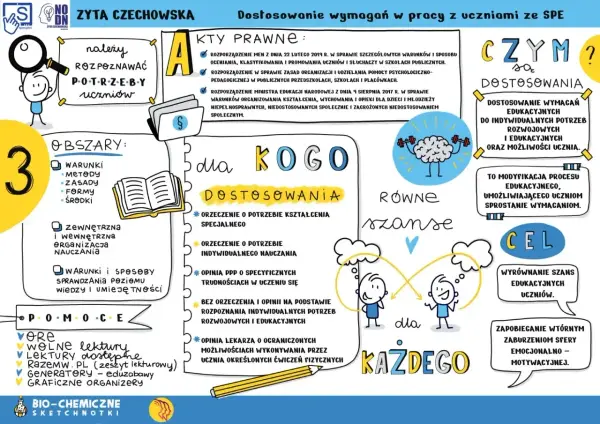 S
NO
DN
ZYTA CZECHOWSKA
Dostosowanie wymagań w pracy z uczniami ze SPE
należy
ROZPOZNAWAĆ
P•O•T•R•Z•E•B•Y
uczniów
AKTY PRAWNE:
ROZPORZĄDZENIE MEN Z DNIA 22 LUTEGO 2019 R. W SPRAWIE SZCZEGÓŁOWYCH WARUNKÓW I SPOSOBU
OCENIANIA, KLASYFIKOWANIA I PROMOWANIA UCZNIÓW I SŁUCHACZY W SZKOŁACH PUBLICZNYCH.
ROZPORZĄDZENIE W SPRAWIE ZASAD ORGANIZACJI I UDZIELANIA POMOCY PSYCHOLOGICZNO-
PEDAGOGICZNEJ W PUBLICZNYCH PRZEDSZKOLACH, SZKOŁACH I PLACÓWKACH.
ROZPORZĄDZENIE MINISTRA EDUKACJI NARODOWEJ Z DNIA 9 SIERPNIA 2017 R. W SPRAWIE
WARUNKÓW ORGANIZOWANIA KSZTAŁCENIA, WYCHOWANIA I OPIEKI DLA DZIECI I MŁODZIEŻY
NIEPEŁNOSPRAWNYCH, NIEDOSTOSOWANYCH SPOŁECZNIE I ZAGROŻONYCH NIEDOSTOSOWANIEM
SPOŁECZNYM.
CZYM ?
są
DOSTOSOWANIA
DOSTOSOWANIE WYMAGAŃ
EDUKACYJNYCH
DO INDYWIDUALNYCH POTRZEB
ROZWOJOWYCH
I EDUKACYJNYCH
ORAZ MOŻLIWOŚCI UCZNIA.
TO MODYFIKACJA PROCESU
EDUKACYJNEGO,
UMOŻLIWIAJĄCEGO UCZNIOM
SPROSTANIE WYMAGANIOM.
3
OBSZARY:
WARUNKI
•METODY
•ZASADY
•FORMY
•ŚRODKI
ZEWNĘTRZNA
I WEWNĘTRZNA
ORGANIZACJA
NAUCZANIA
WARUNKI I SPOSOBY
SPRAWDZANIA POZIOMU
WIEDZY I UMIEJĘTNOŚCI
§
dla KOGO
DOSTOSOWANIA
ORZECZENIE O POTRZEBIE KSZTAŁCENIA
SPECJALNEGO
ORZECZENIE O POTRZEBIE
INDYWIDUALNEGO NAUCZANIA
OPINIA PPP O SPECYFICZNYCH
TRUDNOŚCIACH W UCZENIU SIĘ
BEZ ORZECZENIA I OPINII NA PODSTAWIE
ROZPOZNANIA INDYWIDUALNYCH POTRZEB
ROZWOJOWYCH I EDUKACYJNYCH
OPINIA LEKARZA O OGRANICZONYCH
MOŻLIWOŚCIACH WYKONYWANIA PRZEZ
UCZNIA OKREŚLONYCH ĆWICZEŃ FIZYCZNYCH
RÓWNE
szanse
dla
KAŻDEGO
CEL
WYRÓWNANIE SZANS
EDUKACYJNYCH
UCZNIÓW.
ZAPOBIEGANIE WTÓRNYM
ZABURZENIOM SFERY
EMOCJONALNO –
MOTYWACYJNEJ.
•P•O•M•O•C•E
ORE
WOLNE lektury
LEKTURY dostępne
RAZEMW.PL (zeszyt lekturowy)
GENERATORY - eduzabawy
GRAFICZNE ORGANIZERY
BIO-CHEMICZNE
SKETCHNOTKI